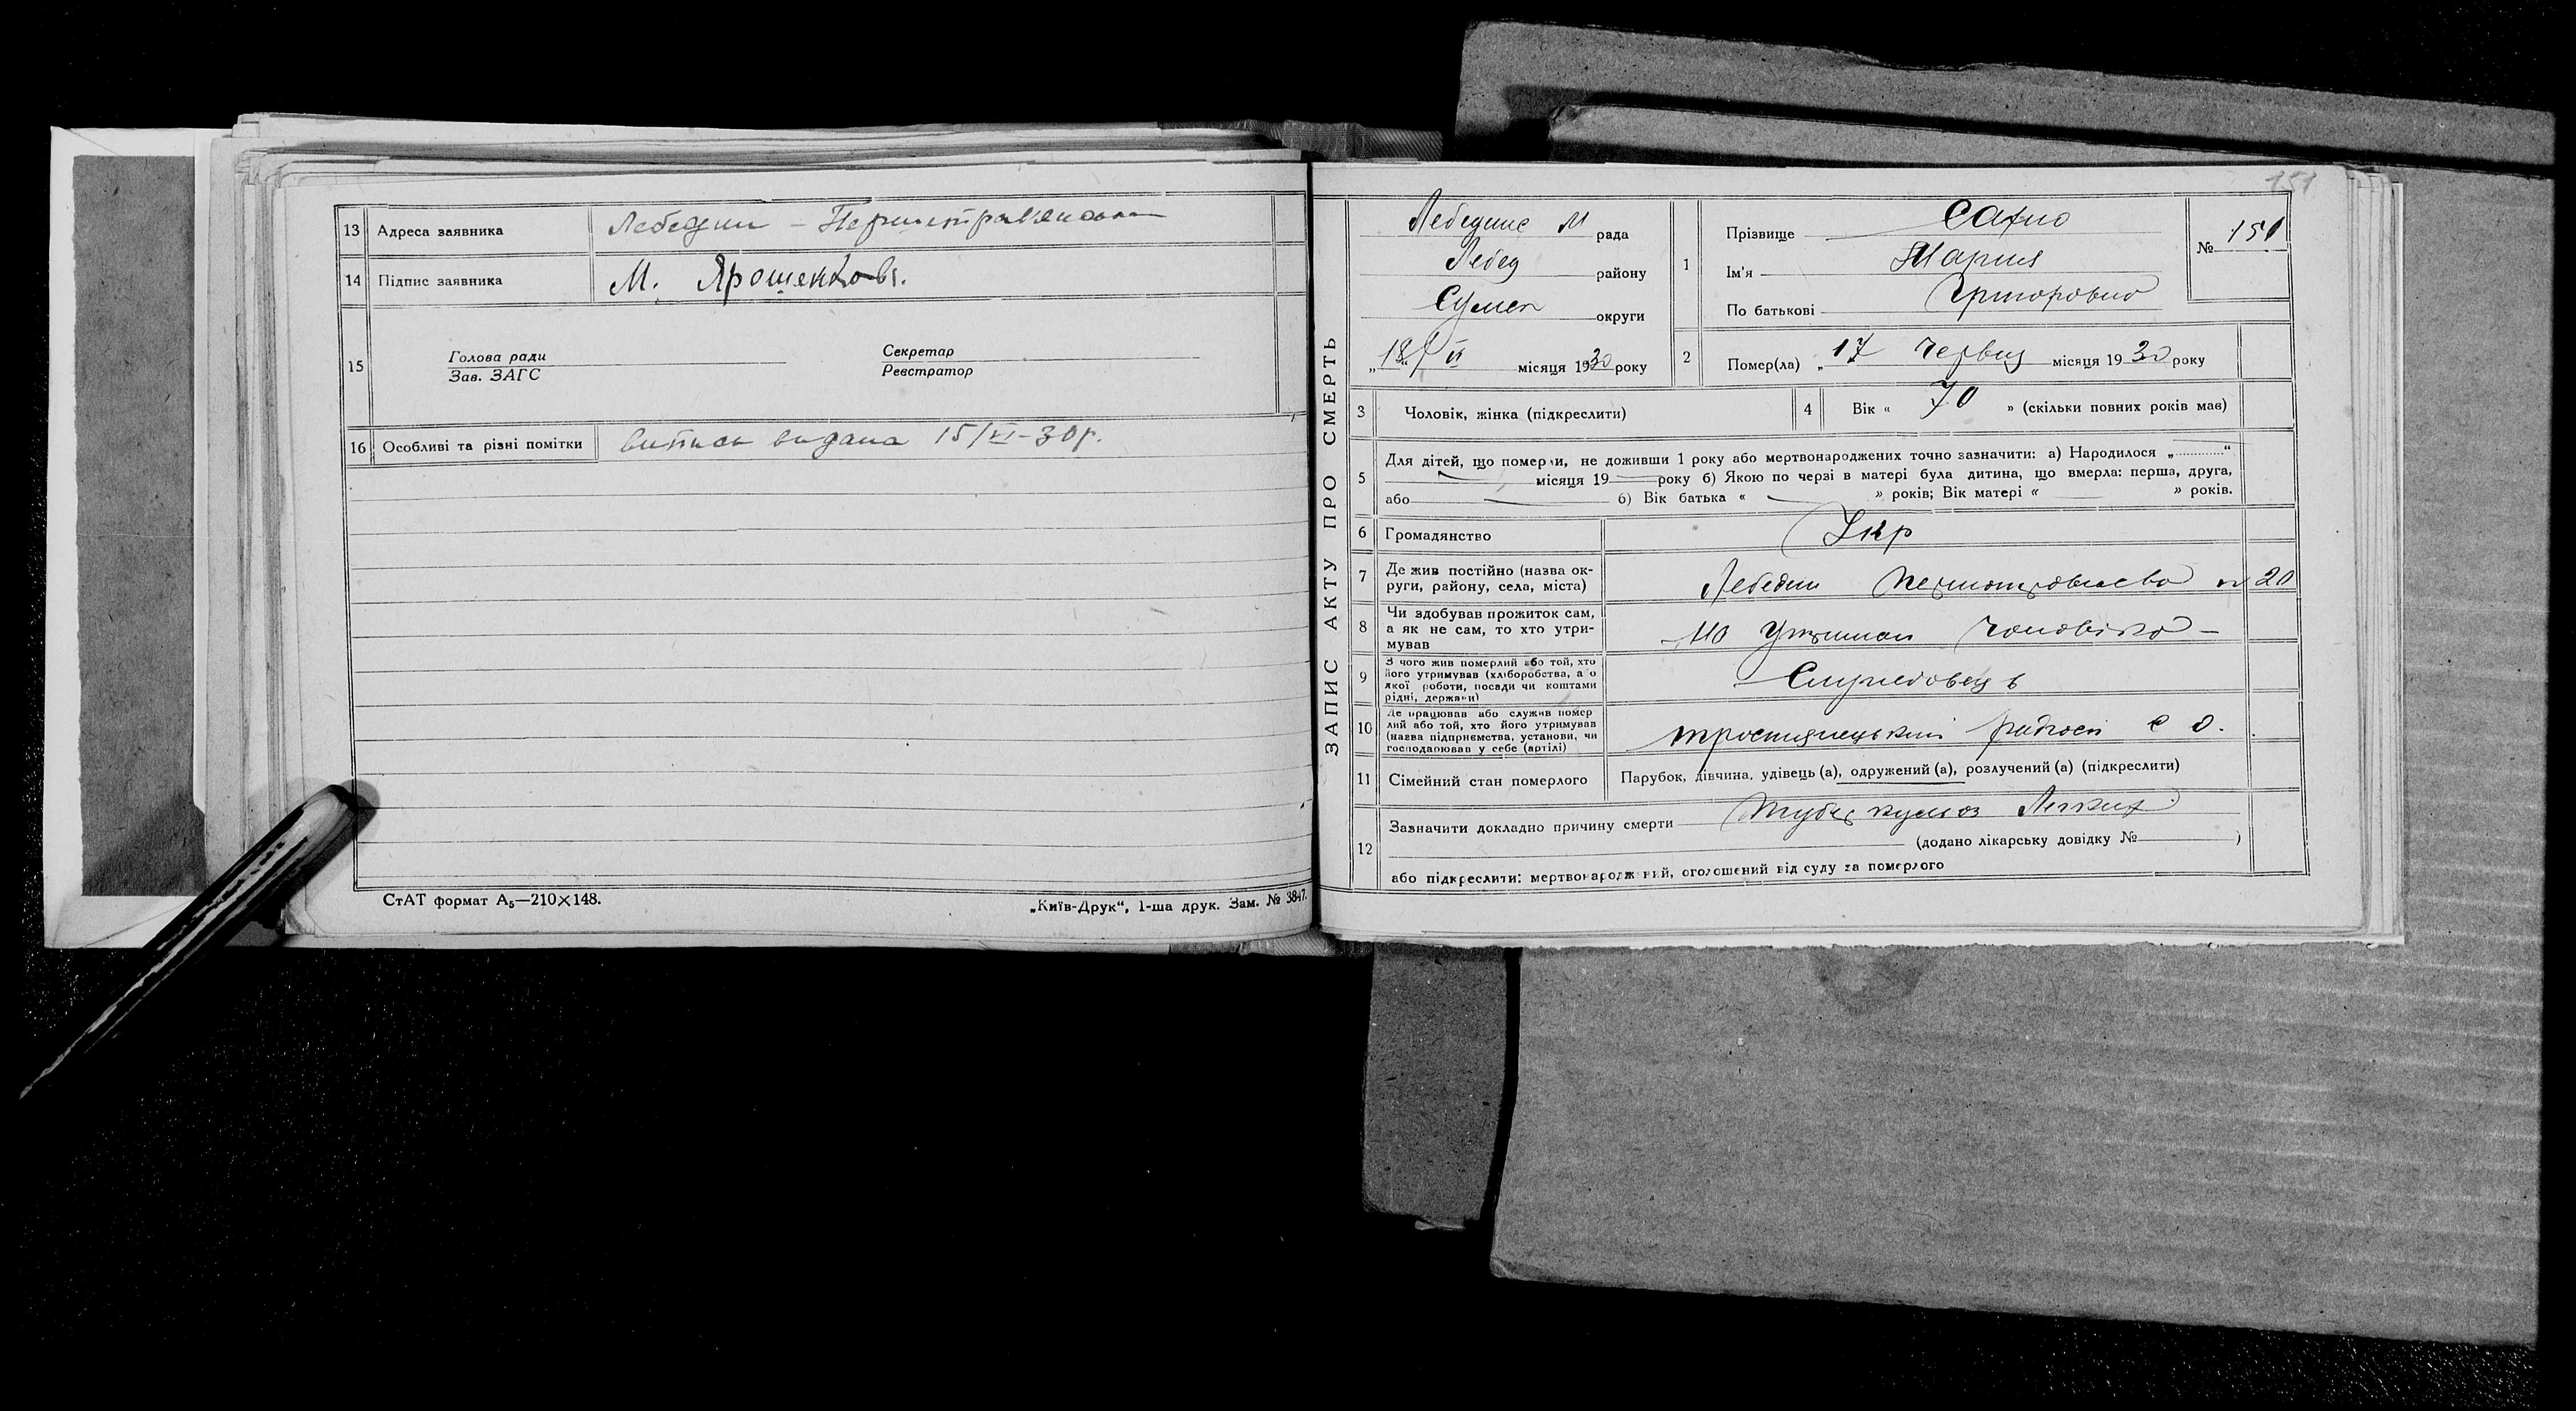 13 Адреса заявника Лебедин –
14 Підпис заявника М. Ярошенкова.
15 Голова ради Секретар
Зав. ЗАГС Реєстратор
16 Особливі та різні помітки Випись видана 15/VI-30р.
СтАТ формат А₅—210×148.
„Київ-Друк“, 1-ша друк. Зам. № 3847.
151
ЗАПИС АКТУ ПРО СМЕРТЬ
Лебединс М рада
Лебед району
Сумск округи
„18“/VI місяця 1930 року
1 Прізвище Сахно
Ім'я Мария
По батькові Григоровна
№ 151
2 Помер(ла) „17 червня місяця 1930 року
3 Чоловік, жінка (підкреслити)
4 Вік « 70 » (скільки повних років мав)
5 Для дітей, що померли, не доживши 1 року або мертвонароджених точно зазначити: а) Народилося „ “
місяця 19 року б) Якою по черзі в матері була дитина, що вмерла: перша, друга,
або б) Вік батька « » років; Вік матері « » років.
6 Громадянство Укр
7 Де жив постійно (назва ок-
руги, району, села, міста) Лебедин 20
8 Чи здобував прожиток сам,
а як не сам, то хто утри-
мував На утриман чоловіка –
9 З чого жив померлий або той, хто
його утримував (хліборобства, а о
якої роботи, посади чи коштами
рідні, держави) Службовець
10 Де працював або служив помер
лий або той, хто його утримував
(назва підприємства, установи, чи
господарював у себе (артілі) Тростянецький с о.
11 Сімейний стан померлого Парубок, дівчина, удівець (а), одружений (а), розлучений (а) (підкреслити)
12 Зазначити докладно причину смерти Туберкульоз Легких
(додано лікарську довідку № )
або підкреслити: мертвонароджений, оголошений від суду за померлого